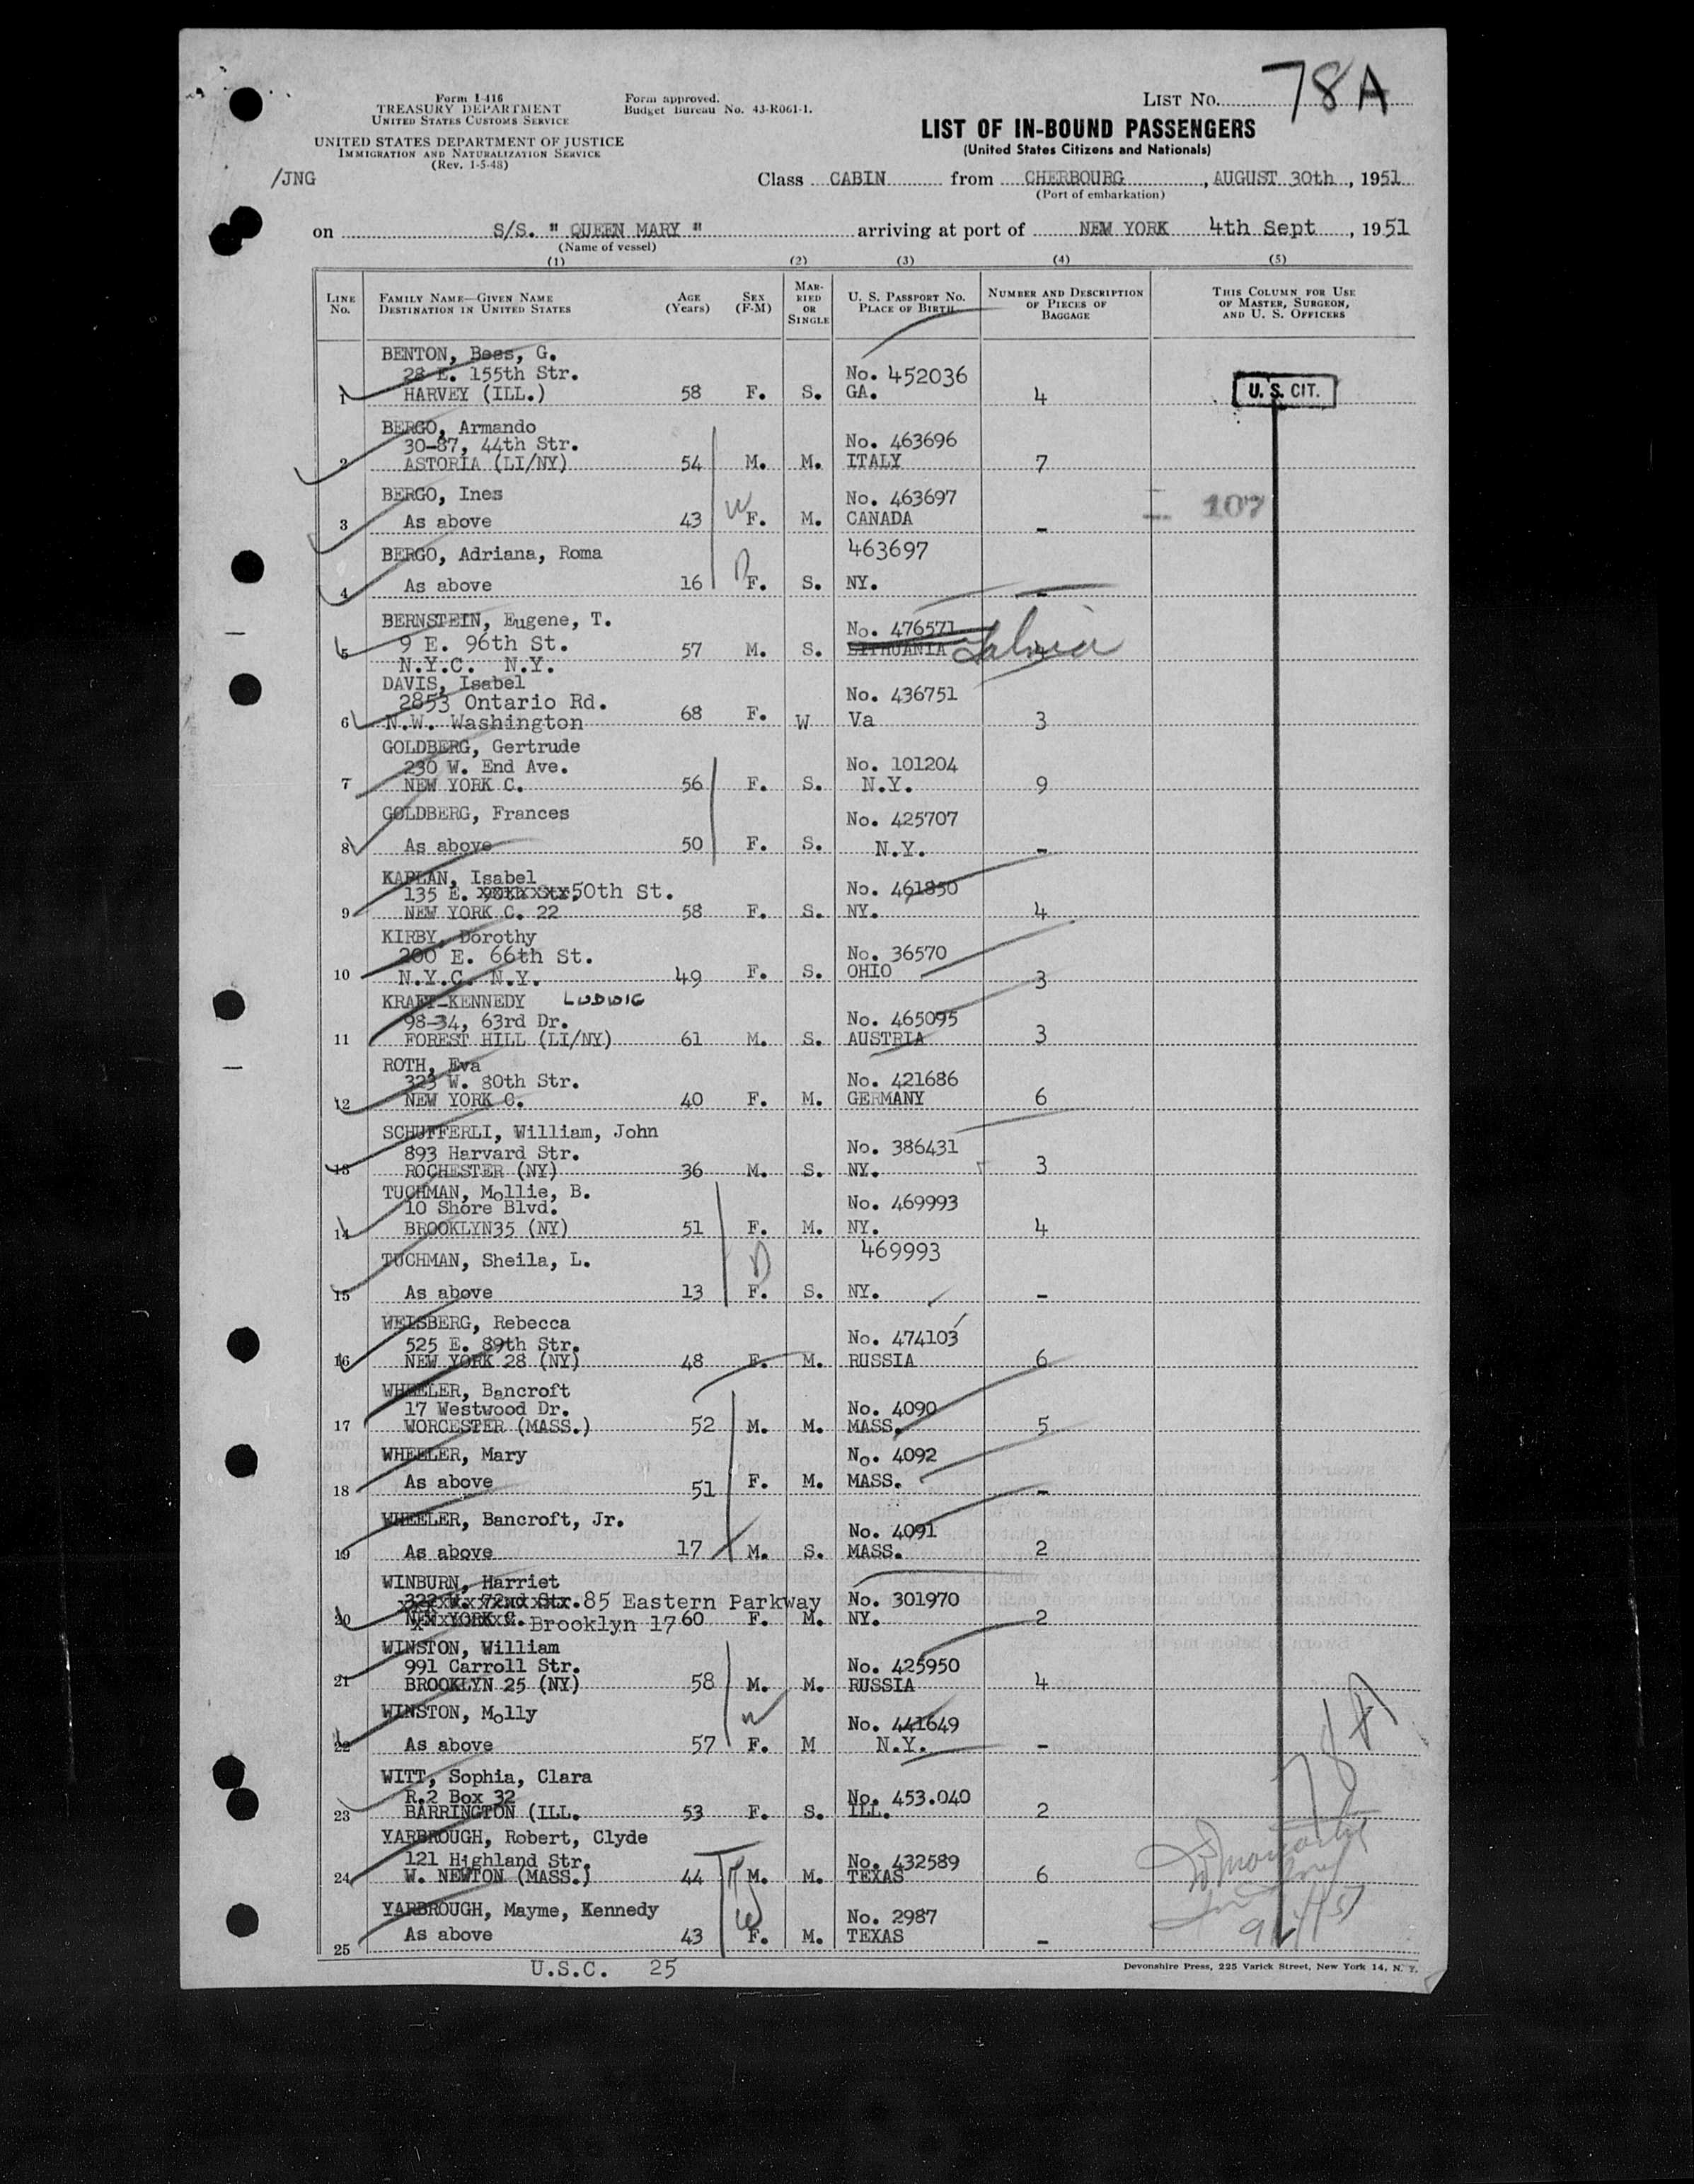 78A
Form I-416
TREASURY DEPARTMENT
UNITED STATES CUSTOMS SERVICE
UNITED STATES DEPARTMENT OF JUSTICE
IMMIGRATION AND NATURALIZATION SERVICE
(Rev. 1-5-48)
Form approved.
Budget Bureau No. 43-R061-1.
LIST No.
LIST OF IN-BOUND PASSENGERS
(United States Citizens and Nationals)
/JNG
Class CABIN from CHERBOURG, AUGUST 30th, 1951
(Port of embarkation)
on S/S. " QUEEN MARY " arriving at port of NEW YORK 4th Sept, 1951
(Name of vessel)
(1) (2) (3) (4) (5)
LINE No. FAMILY NAME—GIVEN NAME DESTINATION IN UNITED STATES AGE (Years) SEX (F-M) MARRIED OR SINGLE U. S. PASSPORT No. PLACE OF BIRTH NUMBER AND DESCRIPTION OF PIECES OF BAGGAGE THIS COLUMN FOR USE OF MASTER, SURGEON, AND U. S. OFFICERS
BENTON, Bess, G.
28 E. 155th Str. No. 452036
1 HARVEY (ILL.) 58 F. S. GA. 4 U. S. CIT.
BERGO, Armando
30-87, 44th Str. No. 463696
2 ASTORIA (LI/NY) 54 M. M. ITALY 7
BERGO, Ines No. 463697
3 As above 43 W F. M. CANADA - 107
BERGO, Adriana, Roma 463697
4 As above 16 D F. S. NY. -
BERNSTEIN, Eugene, T. No. 476571
5 9 E. 96th St. 57 M. S. LITHUANIA
N.Y.C. N.Y.
DAVIS, Isabel
2853 Ontario Rd. No. 436751
6 N.W. Washington 68 F. W Va 3
GOLDBERG, Gertrude
230 W. End Ave. No. 101204
7 NEW YORK C. 56 F. S. N.Y. 9
GOLDBERG, Frances No. 425707
8 As above 50 F. S. N.Y. -
KAPLAN, Isabel
135 E. 50th St. No. 461850
9 NEW YORK C. 22 58 F. S. NY. 4
KIRBY, Dorothy
200 E. 66th St. No. 36570
10 N.Y.C. N.Y. 49 F. S. OHIO 3
KRAFT-KENNEDY LUDWIG
98-34, 63rd Dr. No. 465095
11 FOREST HILL (LI/NY) 61 M. S. AUSTRIA 3
ROTH, Eva
323 W. 80th Str. No. 421686
12 NEW YORK C. 40 F. M. GERMANY 6
SCHUFFERLI, William, John
893 Harvard Str. No. 386431
13 ROCHESTER (NY) 36 M. S. NY. 3
TUCHMAN, Mollie, B.
10 Shore Blvd. No. 469993
14 BROOKLYN35 (NY) 51 F. M. NY. 4
TUCHMAN, Sheila, L. 469993
15 As above 13 D F. S. NY. -
WEISBERG, Rebecca
525 E. 89th Str. No. 474103
16 NEW YORK 28 (NY) 48 F. M. RUSSIA 6
WHEELER, Bancroft
17 Westwood Dr. No. 4090
17 WORCESTER (MASS.) 52 M. M. MASS. 5
WHEELER, Mary No. 4092
18 As above 51 F. M. MASS. -
WHEELER, Bancroft, Jr. No. 4091
19 As above 17 M. S. MASS. 2
WINBURN, Harriet
322 W. 72nd Str. 85 Eastern Parkway No. 301970
20 NEW YORK C. Brooklyn 17 60 F. M. NY. 2
WINSTON, William
991 Carroll Str. No. 425950
21 BROOKLYN 25 (NY) 58 M. M. RUSSIA 4
WINSTON, Molly No. 441649
22 As above 57 W F. M N.Y. -
WITT, Sophia, Clara
R.2 Box 32 No. 453.040
23 BARRINGTON (ILL. 53 F. S. ILL. 2
YARBROUGH, Robert, Clyde
121 Highland Str. No. 432589
24 W. NEWTON (MASS.) 44 H M. M. TEXAS 6
YARBROUGH, Mayme, Kennedy No. 2987
25 As above 43 W F. M. TEXAS -
9/4/51
U.S.C. 25
Devonshire Press, 225 Varick Street, New York 14, N. Y.